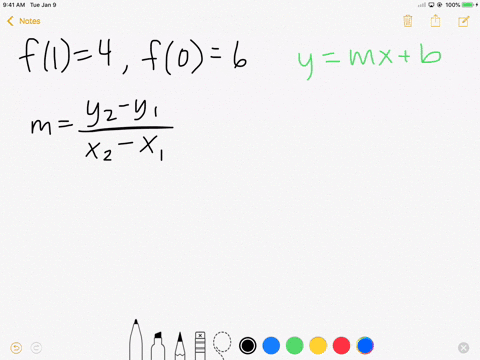 9:41 AM Tue Jan 9 100%
Notes
f(1)=4, f(0)=6
y=mx+b
m=
y₂-y₁
x₂-x₁